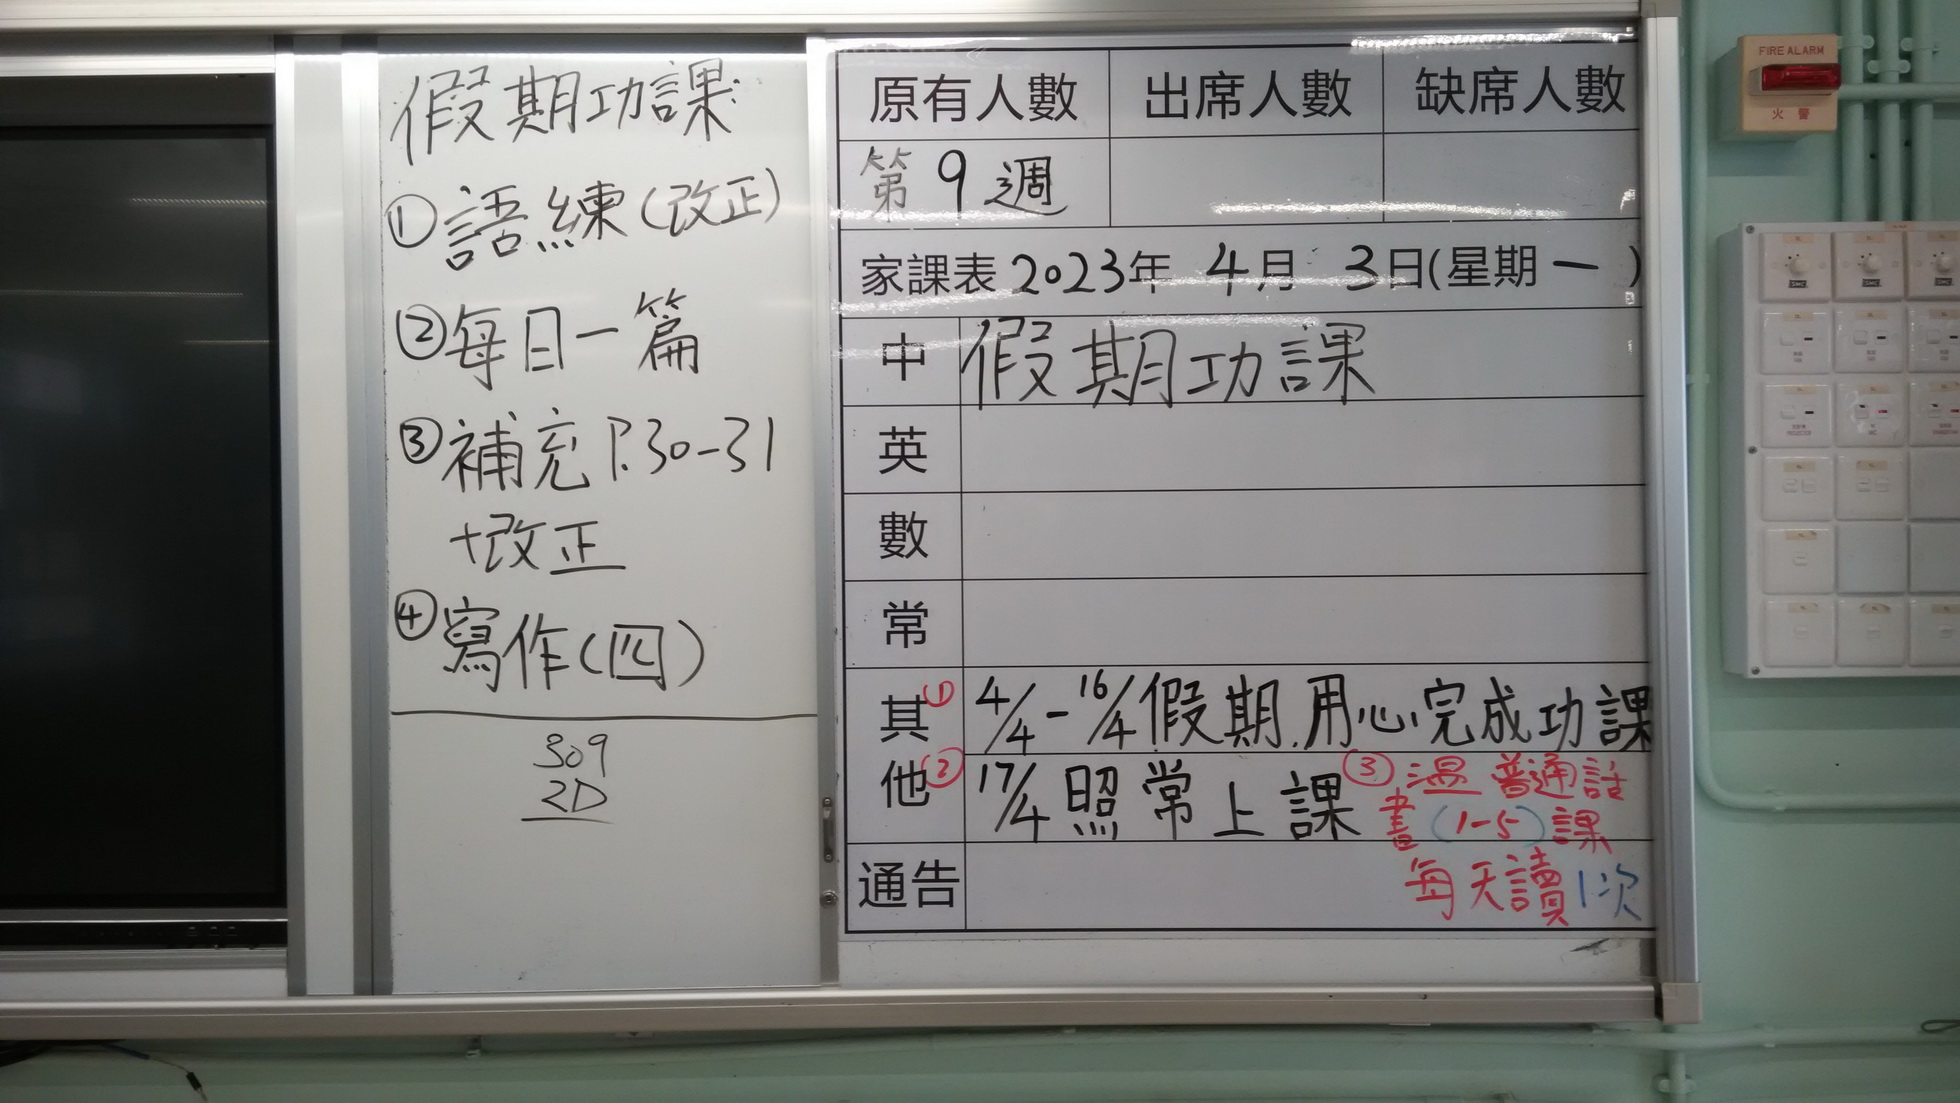 假期功課:
①語練(改正)
②每日一篇
③補充P.30-31
+改正
④寫作(四)
309
2D
原有人數 出席人數 缺席人數
第9週
家課表2023年4月3日(星期一)
中 假期功課
英
數
常
其他 ①4/4-16/4假期,用心完成功課
②17/4照常上課 ③溫普通話
書(1-5)課
每天讀1次
通告
FIRE ALARM
火警